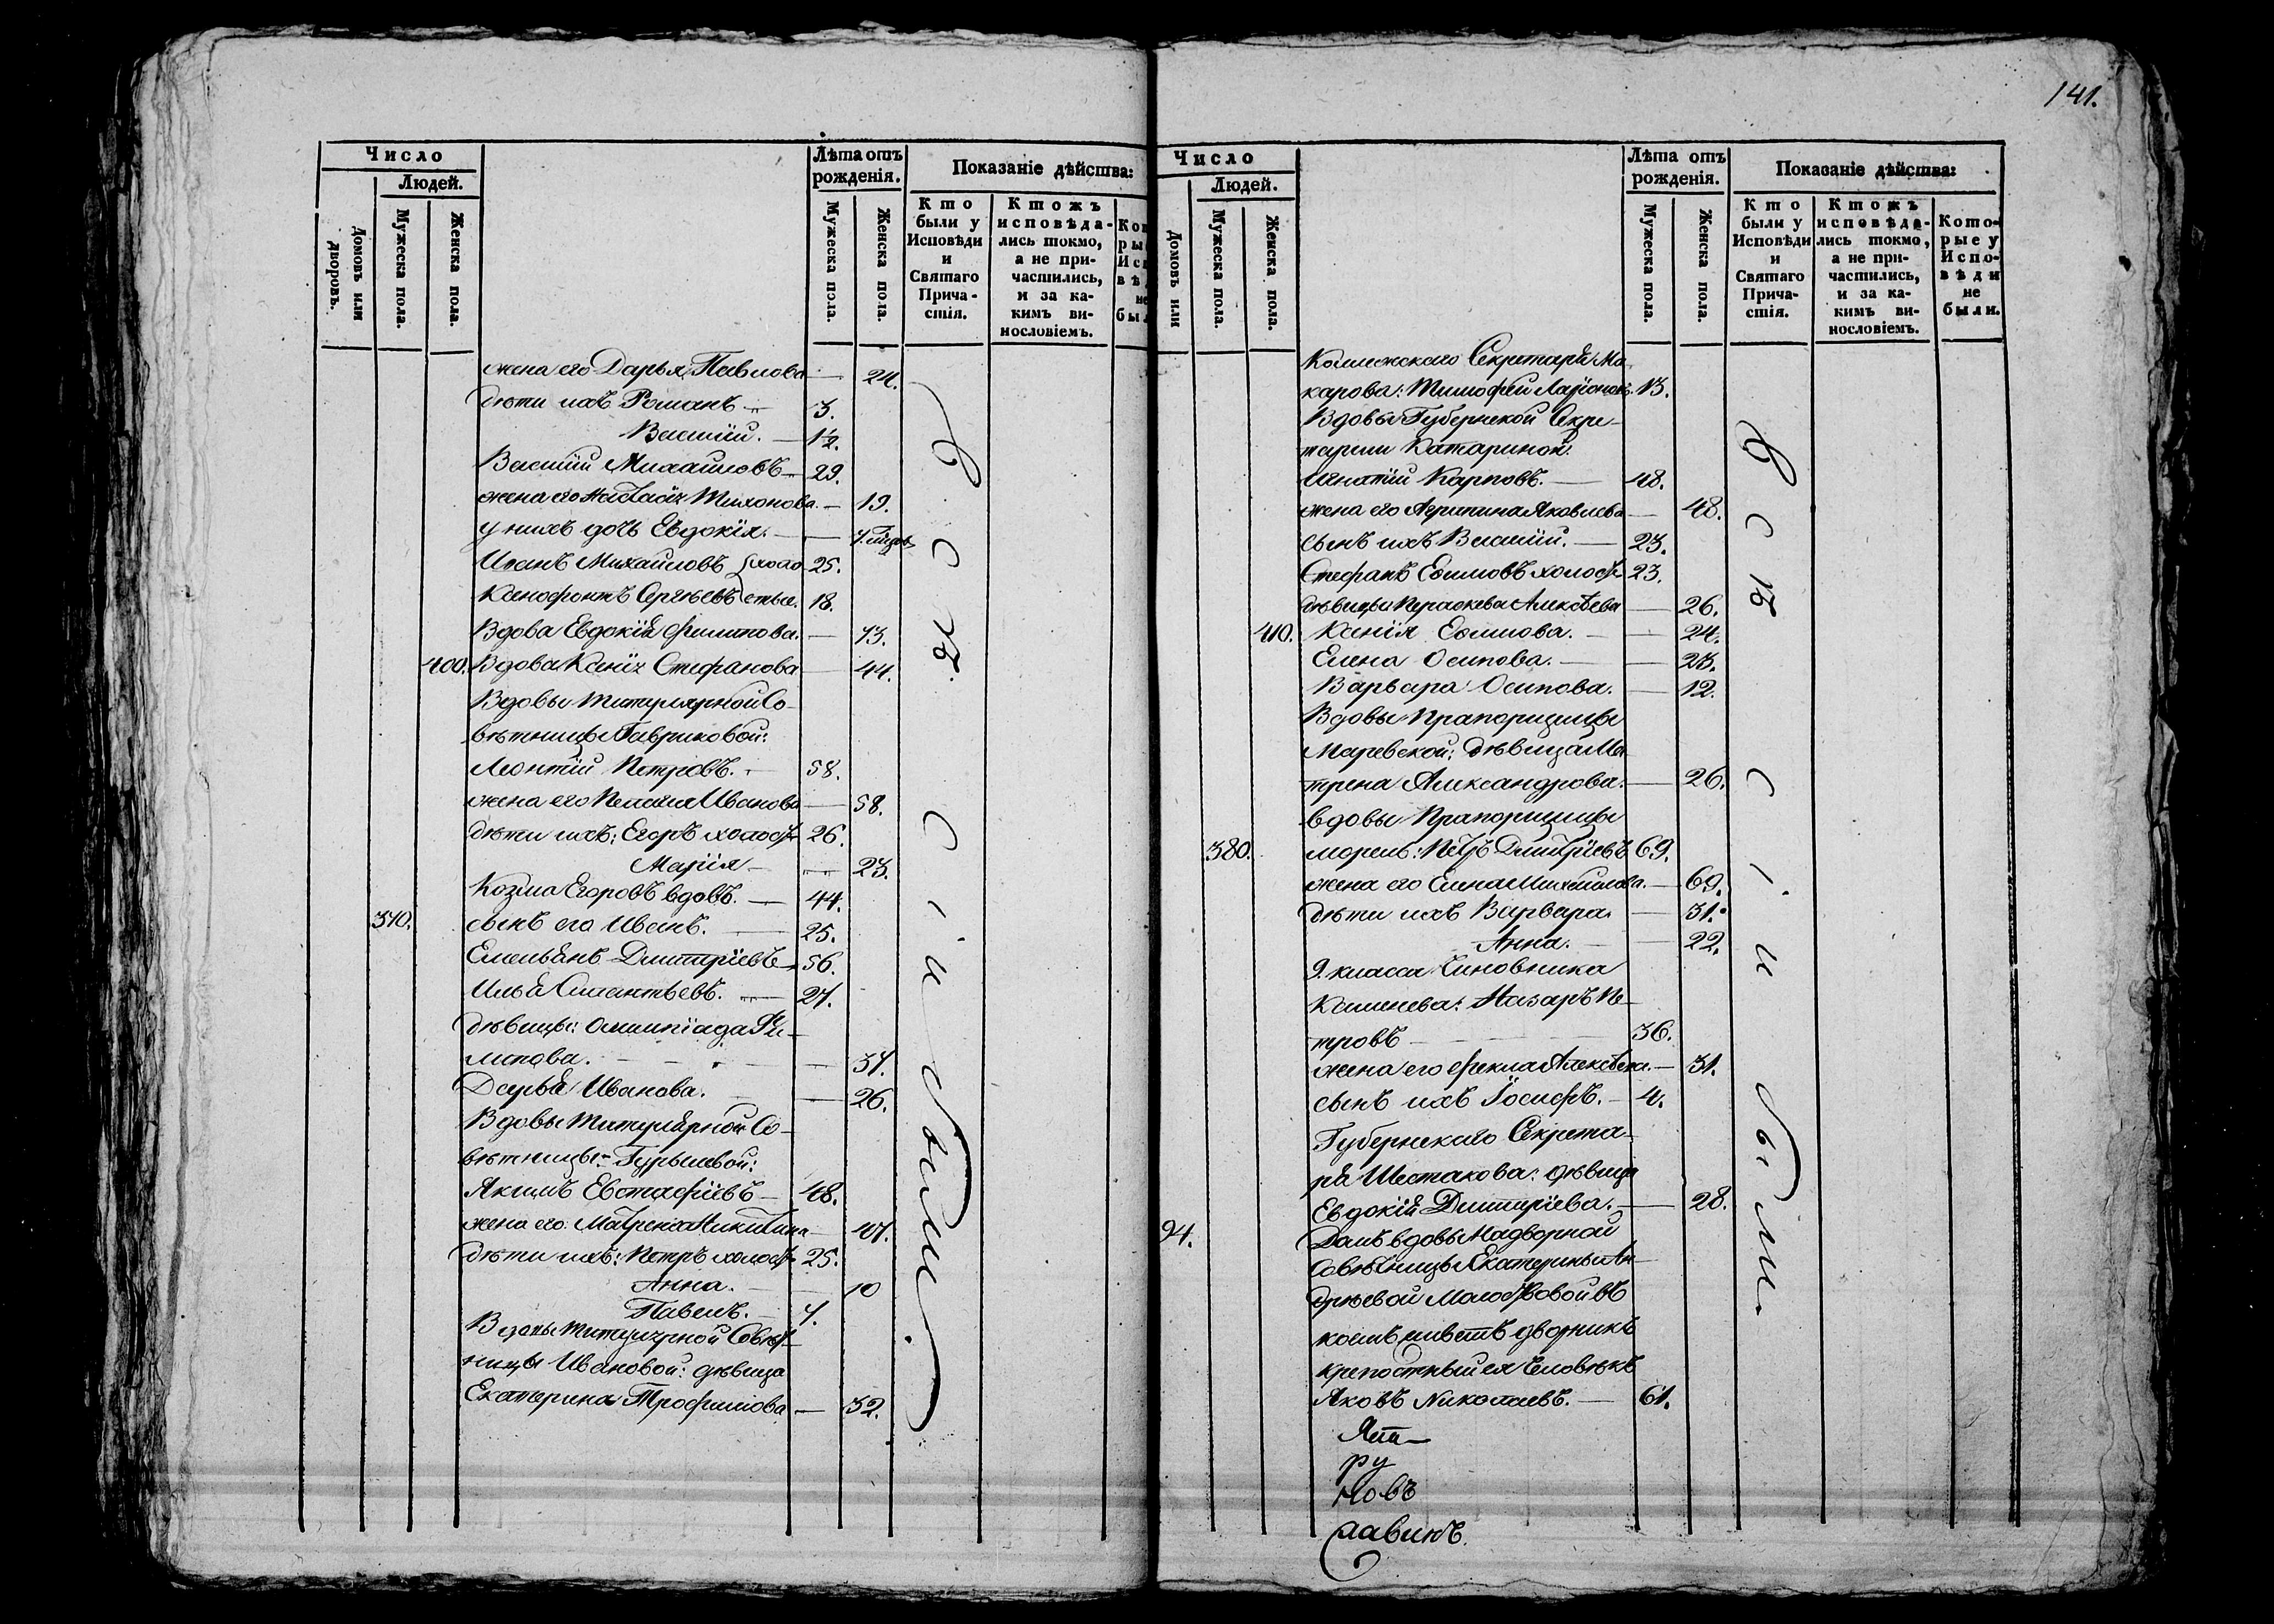 141.
Число
Людей.
Домовъ или дворовъ.
Мужеска пола.
Женска пола.
Лѣта отъ рожденія.
Мужеска пола.
Женска пола.
Показаніе дѣйства:
Кто были у Исповѣди и Святаго Прича-стія.
Ктожъ исповѣда-лись токмо, а не при-частились, и за ка-кимъ ви-нословіемъ.
жена его Дарья Павлова — 24.
дѣти ихъ Романъ — 3.
Василій. — 1½.
Василій Михайловъ — 29.
жена его Настасія Тихонова. — 19.
у нихъ дочь Евдокія. —
Иванъ Михайловъ холо- 25.
Ксенофонтъ Сергѣевъ стые. 18.
Вдова Евдокія Филипова. — 73.
400. Вдова Ксенія Стефанова — 44.
Вдовы Титулярной Со-
вѣтницы Гавриковой:
Леонтій Петровъ. — 58.
жена его Пелагея Иванова — 58.
дѣти ихъ: Егоръ холостъ 26.
Марія — 23.
Козма Егоровъ вдовъ. — 44.
370. сынъ его Иванъ. — 25.
Емельянъ Дмитріевъ — 56.
Илья Силантьевъ. — 27.
дѣвицы: Олимпіада Фи-
липова. — 37.
Дарья Иванова. — 26.
Вдовы Титулярной Со-
вѣтницы Гурьевой:
Акимъ Евстафіевъ — 48.
жена его Матрена Никитина — 47.
дѣти ихъ: Петръ холостъ 25.
Анна. — 10
Павелъ. — 7.
Вдовы Титулярной Совѣт-
ницы Ивановой: дѣвица
Екатерина Трофимова — 32.
Всѣ сіи были.
Число
Людей.
Домовъ или
Мужеска пола.
Женска пола.
Лѣта отъ рожденія.
Мужеска пола.
Женска пола.
Показаніе дѣйства:
Кто были у Исповѣди и Святаго Прича-стія.
Ктожъ исповѣда-лись токмо, а не при-частились, и за ка-кимъ ви-нословіемъ.
Кото-рые у Испо-вѣди не были.
Коллежскаго Секретаря Ма-
карова: Тимофей Ларіоновъ. 13.
Вдовы Губернской Секре-
тарши Катариной:
Игнатій Карповъ. — 48.
жена его Агрипина Яковлева — 48.
сынъ ихъ Василій. — 23.
Стефанъ Ефимовъ холостъ 23.
дѣвицы Параскева Алексѣева — 26.
410. Ксенія Ефимова. — 24.
Елена Осипова. — 23.
Варвара Осипова. — 12.
Вдовы Прапорщицы
Маревской: дѣвица Ма-
трена Александрова. — 26.
вдовы Прапорщицы
380. Морель: Петръ Дмитріевъ 69.
жена его Елена Михайлова. — 69.
дѣти ихъ Варвара. — 31.
Анна. — 22.
9. класса Чиновника
Каменева: Назаръ Пе-
тровъ — 36.
жена его Фекла Алексѣева. — 31.
сынъ ихъ Іосифъ. — 4.
Губернскаго Секрета-
ря Шестакова: дѣвица
Евдокія Дмитріева. — 28.
94. Домъ вдовы Надворной
Совѣтницы Екатерины Ан-
дреевой Молоствовой въ
коемъ живетъ дворникъ
крепостный ея человѣкъ
Яковъ Николаевъ. — 61.
ру
новъ
Всѣ сіи были.